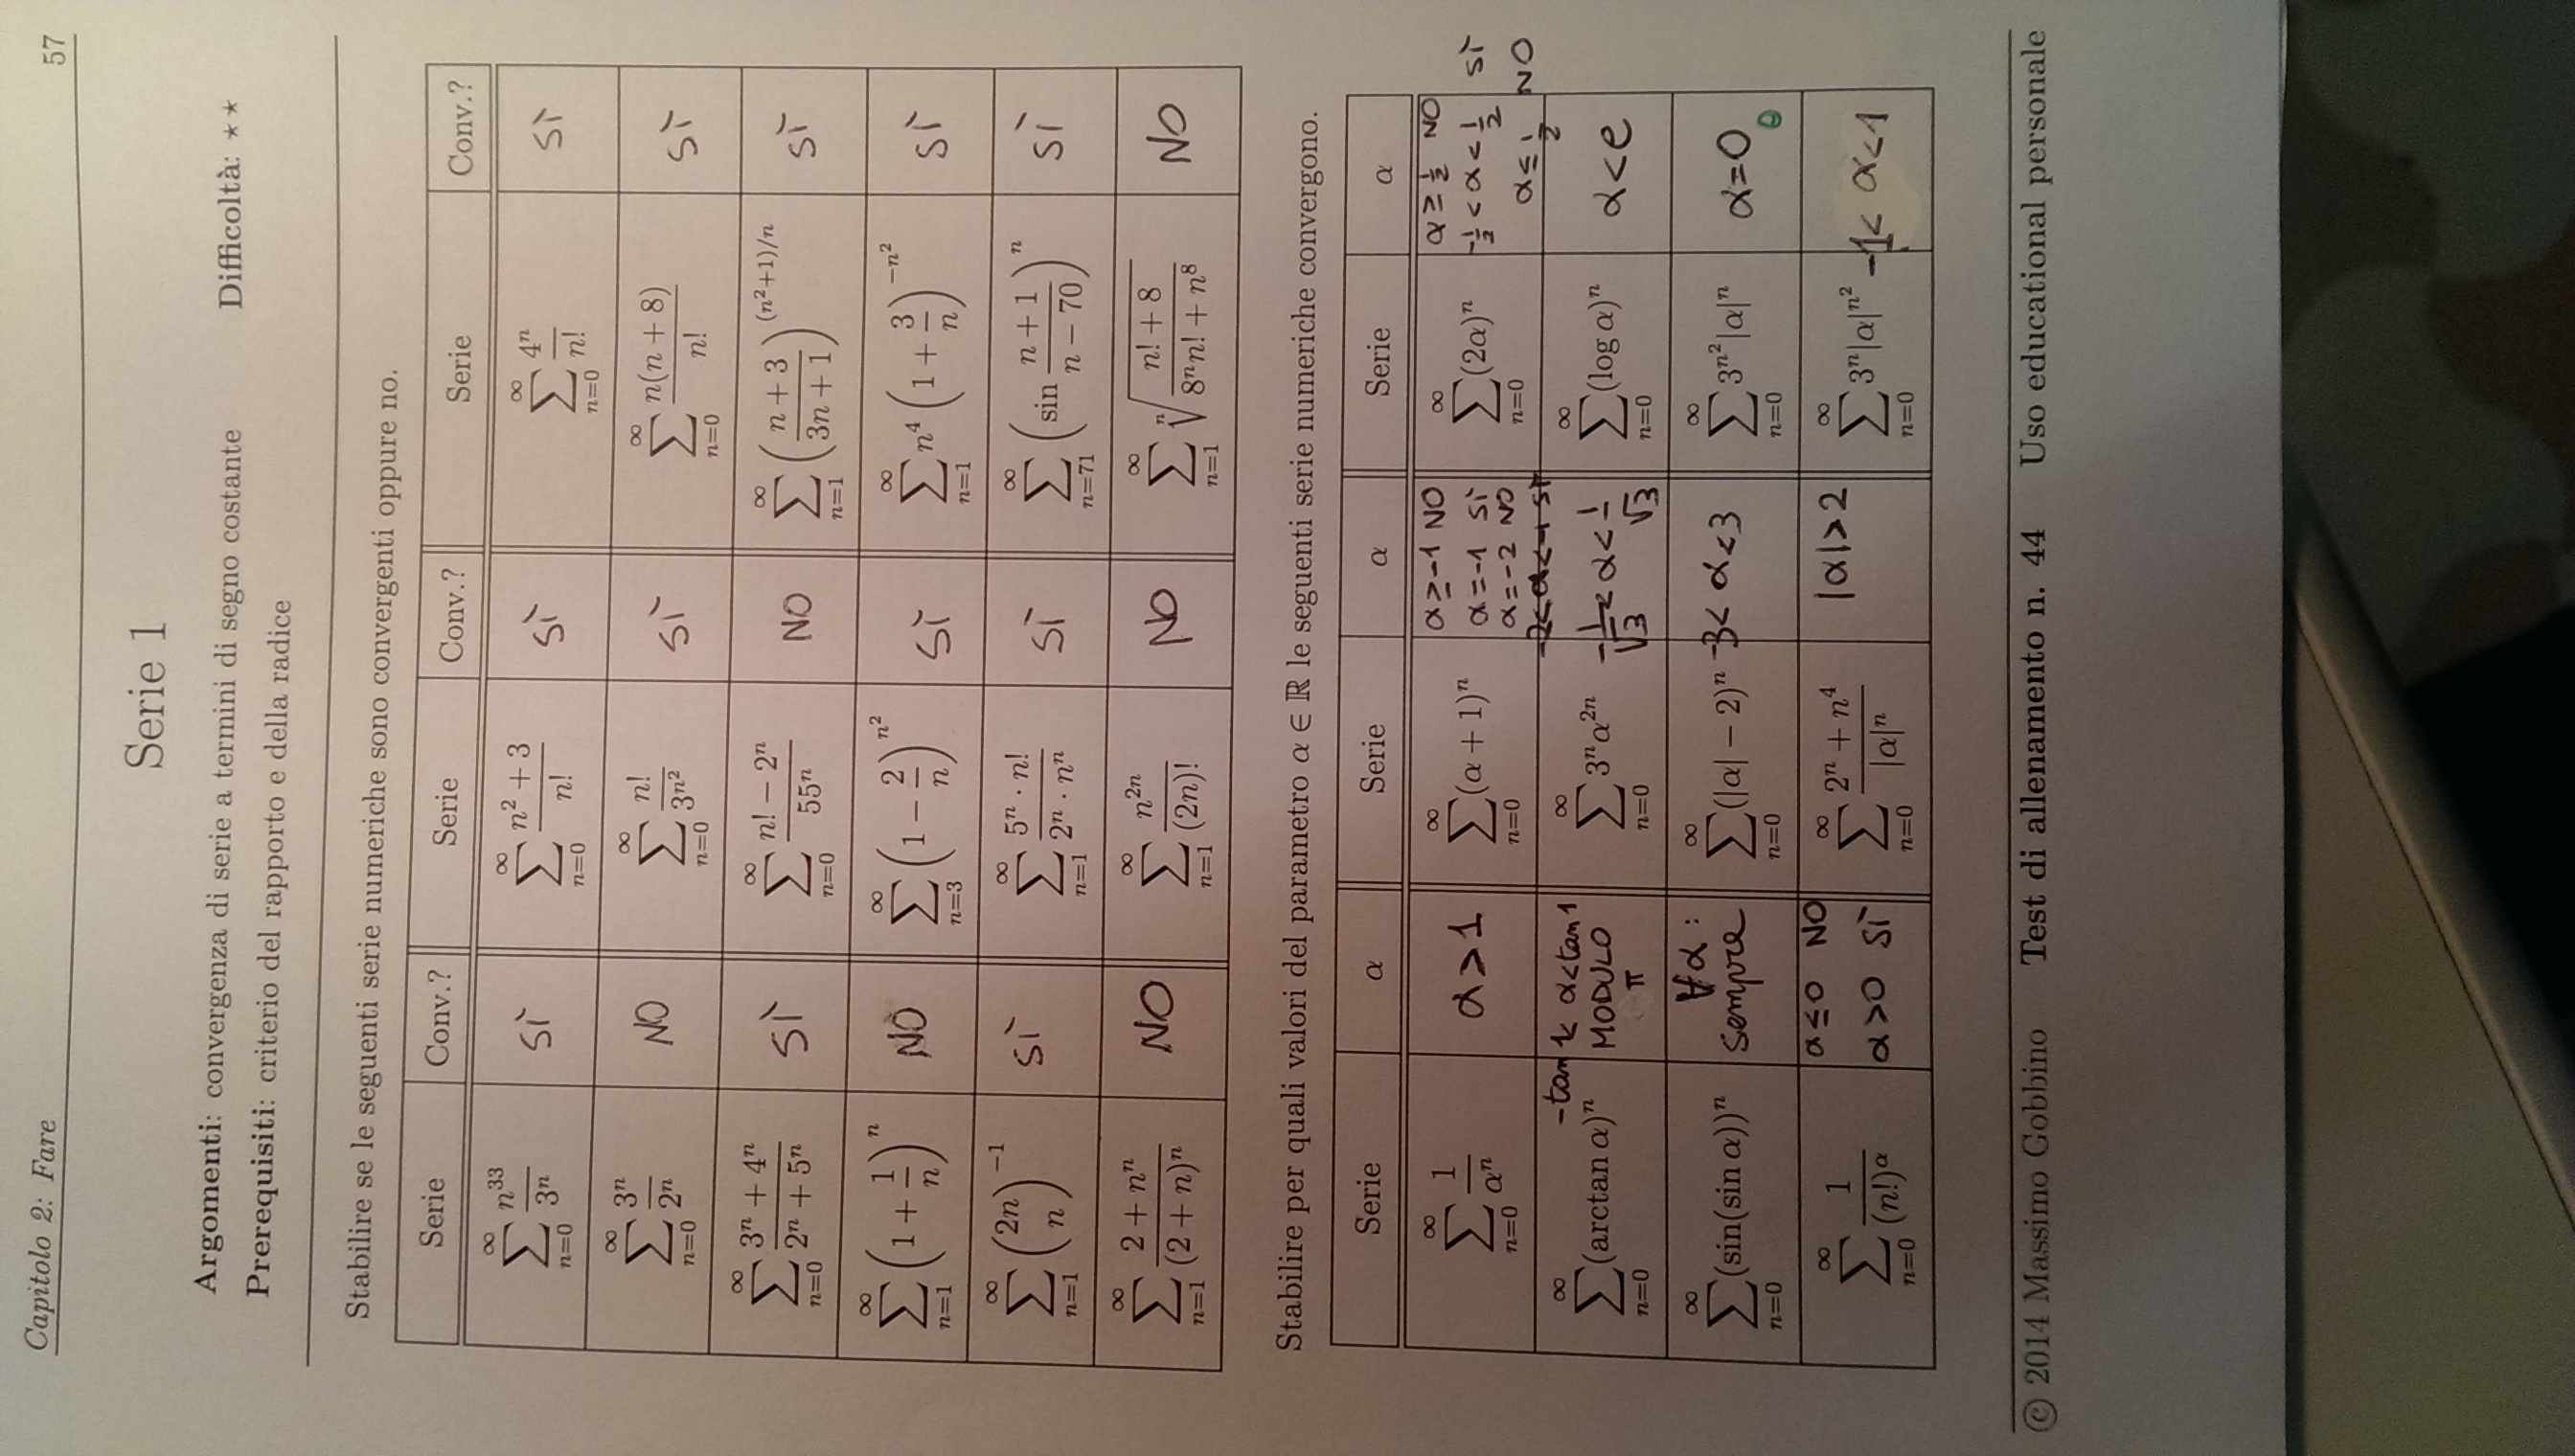 Capitolo 2: Fare 57
Serie 1
Argomenti: convergenza di serie a termini di segno costante Difficoltà: ⋆⋆
Prerequisiti: criterio del rapporto e della radice
Stabilire se le seguenti serie numeriche sono convergenti oppure no.
Serie Conv.? Serie Conv.? Serie Conv.?
∑_{n=0}^{∞} n^{33}/3^n SÌ ∑_{n=0}^{∞} (n^2+3)/n! SÌ ∑_{n=0}^{∞} 4^n/n! SÌ
∑_{n=0}^{∞} 3^n/2^n NO ∑_{n=0}^{∞} n!/3^{n^2} SÌ ∑_{n=0}^{∞} n(n+8)/n! SÌ
∑_{n=0}^{∞} (3^n+4^n)/(2^n+5^n) SÌ ∑_{n=0}^{∞} (n!-2^n)/55^n NO ∑_{n=1}^{∞} ((n+3)/(3n+1))^{(n^2+1)/n} SÌ
∑_{n=1}^{∞} (1+1/n)^n NO ∑_{n=3}^{∞} (1-2/n)^{n^2} SÌ ∑_{n=1}^{∞} n^4 (1+3/n)^{-n^2} SÌ
∑_{n=1}^{∞} (2n n)^{-1} SÌ ∑_{n=1}^{∞} (5^n · n!)/(2^n · n^n) SÌ ∑_{n=71}^{∞} (sin (n+1)/(n-70))^n SÌ
∑_{n=1}^{∞} (2+n^n)/(2+n)^n NO ∑_{n=1}^{∞} n^{2n}/(2n)! NO ∑_{n=1}^{∞} \sqrt[n]{(n!+8)/(8^n n!+n^8)} NO
Stabilire per quali valori del parametro α ∈ ℝ le seguenti serie numeriche convergono.
Serie α Serie α Serie α
∑_{n=0}^{∞} 1/α^n α>1 ∑_{n=0}^{∞} (α+1)^n α≥-1 NO α=-1 SÌ α=-2 NO -2<α<-1 SÌ ∑_{n=0}^{∞} (2α)^n α≥1/2 NO -1/2<α<1/2 SÌ α≤1/2 NO
∑_{n=0}^{∞} (arctan α)^n -tan 1<α<tan 1 MODULO π ∑_{n=0}^{∞} 3^n α^{2n} -1/√3<α<1/√3 ∑_{n=0}^{∞} (log α)^n α<e
∑_{n=0}^{∞} (sin(sin α))^n ∀α: sempre ∑_{n=0}^{∞} (|α|-2)^n -3<α<3 ∑_{n=0}^{∞} 3^{n^2}|α|^n α=0
∑_{n=0}^{∞} 1/(n!)^α α≤0 NO α>0 SÌ ∑_{n=0}^{∞} (2^n+n^4)/|α|^n |α|>2 ∑_{n=0}^{∞} 3^n|α|^{n^2} -1<α<1
© 2014 Massimo Gobbino Test di allenamento n. 44 Uso educational personale